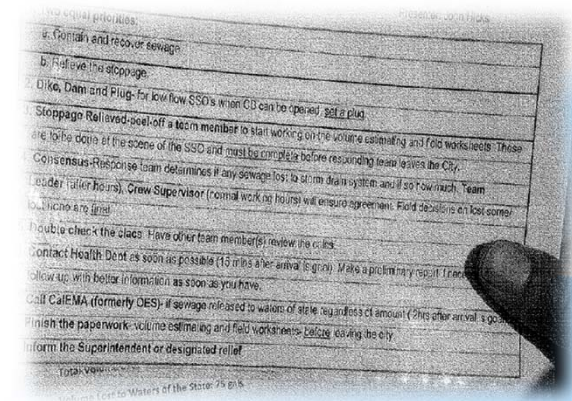 Two equal priorities:
Presenter: John Hicks
a. Contain and recover sewage
b. Relieve the stoppage
2. Dike, Dam and Plug- for low flow SSO's when CB can be opened, set a plug
Stoppage Relieved-peel-off a team member to start working on the volume estimating and field worksheets. These
are to be done at the scene of the SSO and must be complete before responding team leaves the City.
Consensus-Response team determines if any sewage lost to storm drain system and if so how much. Team
Leader (after hours), Crew Supervisor (normal working hours) will ensure agreement. Field decisions on lost some/
lost none are final
Double check the Have other team member(s) review the
Contact Health Dept as soon as possible (15 mins after arrival is goal). Make a preliminary report
follow up with better information as soon as you have.
Call CalEMA (formerly OES)- if sewage released to waters of state regardless of amount (2hrs after arrival is
Finish the paperwork- volume estimating and field worksheets- before leaving the city
Inform the Superintendent or designated relief
Total
Lost to Waters of the State: 75 gals.